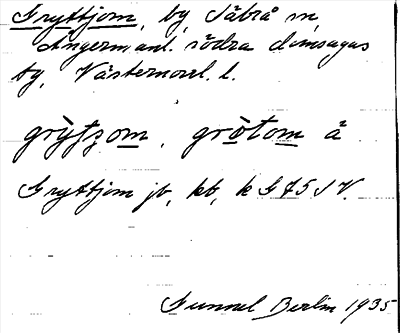 Gryttjom, by, Säbrå sn,
Ångermanl. södra domsagas
tg, Västernorrl. l.
grỳtʒom, gròtom å
Gryttjom jb, kb, k G 75 S V.
Gunnel Berlin 1935